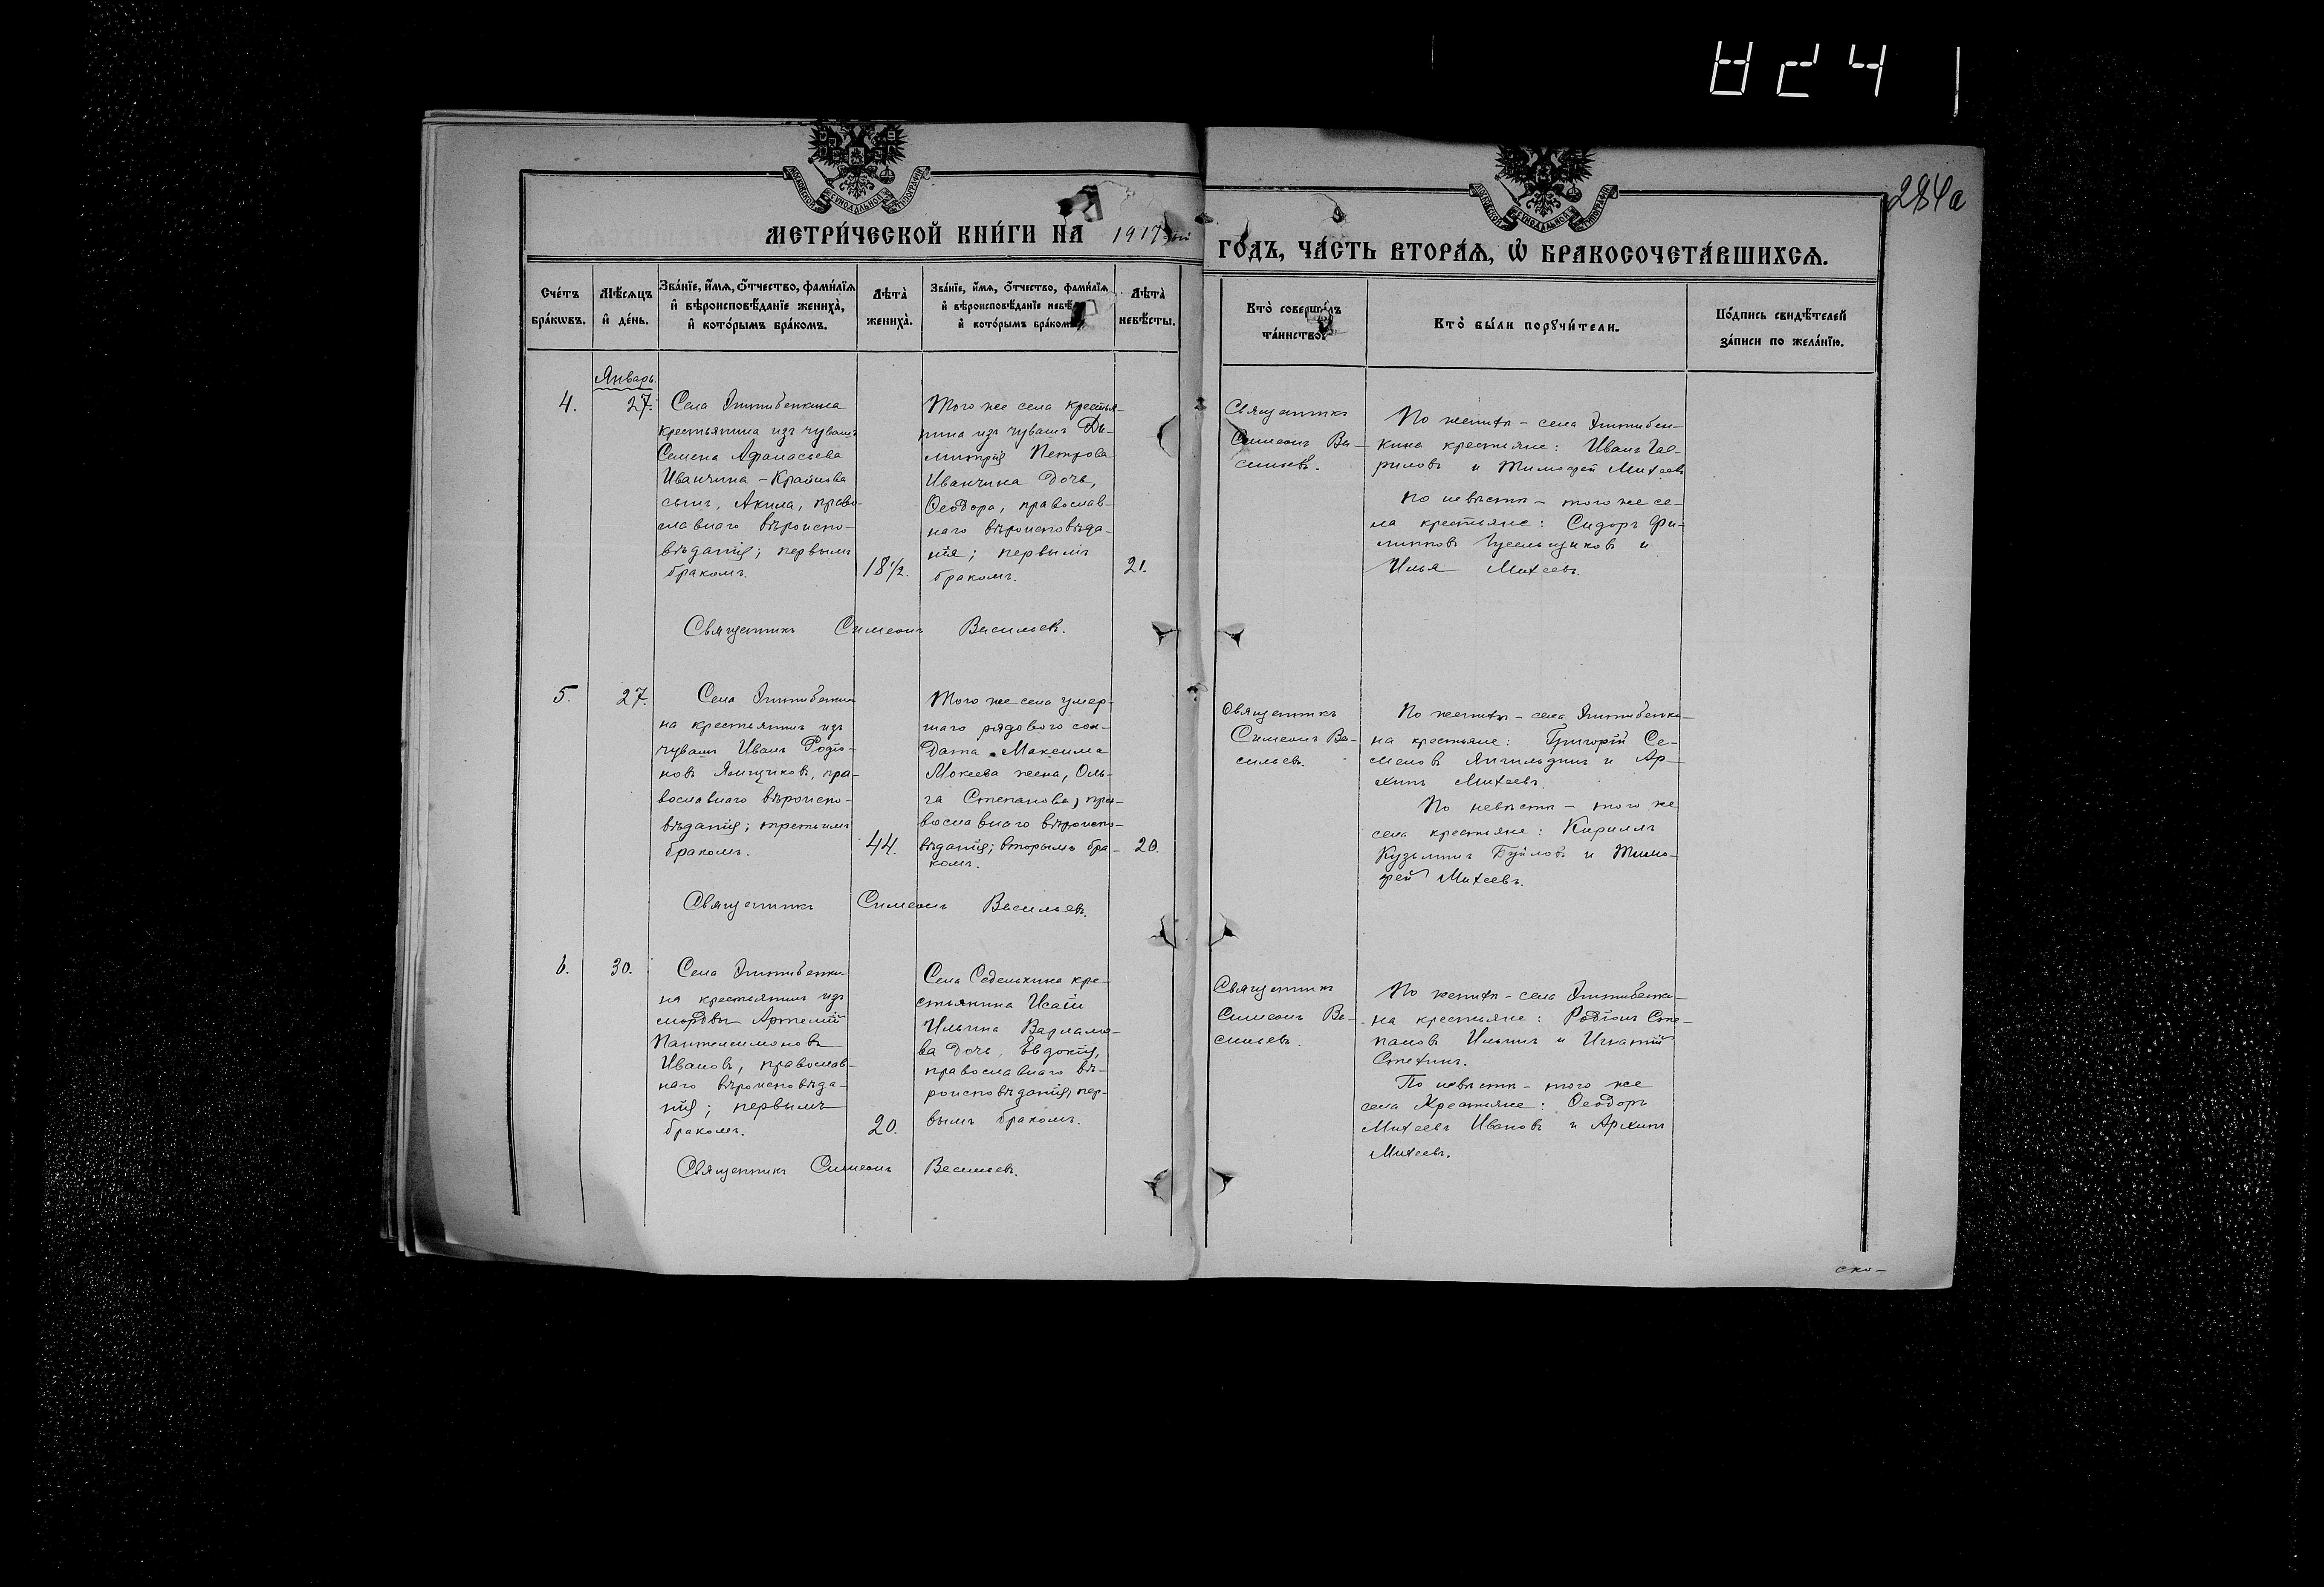 824
284а
МОСКОВСКОЙ СѴНОДАЛЬНОЙ ТИПОГРАФІИ
МОСКОВСКОЙ СѴНОДАЛЬНОЙ ТИПОГРАФІИ
МЕТРИ́ЧЕСКОЙ КНИ́ГИ НА 1917-ый
ГО́ДЪ, ЧА́СТЬ ВТОРА́Ѧ, Ѡ҆ БРАКОСОЧЕТА́ВШИХСѦ.
Сче́тъ
бра́кѡвъ.
Мѣ́сѧцъ
и҆ де́нь.
Зва́нїе, и҆́мѧ, о҆́тчество, фами́лїѧ
и҆ вѣроисповѣ́данїе жениха̀,
и҆ кото́рымъ бра́комъ.
Лѣта̀
жениха̀.
Зва́нїе, и҆́мѧ, о҆́тчество, фами́лїѧ
и҆ вѣроисповѣ́данїе невѣ́
и҆ кото́рымъ бра́комъ.
Лѣта̀
невѣ́сты.
Кто̀ соверши́лъ
та́инство.
Кто̀ бы́ли порꙋчи́тели.
По́дпись свидѣ́телей
за́писи по жела́нїю.
Январь.
4.
27.
Села Эштебенкина
крестьянина изъ чувашъ
Семена Афанасьева
Иванчина-Крайнова
сынъ, Акила, право-
славнаго вѣроиспо-
вѣданія; первымъ
бракомъ.
18½.
Того же села крестья-
нина изъ чувашъ Ди-
митрія Петрова
Иванчина дочь,
Ѳеодора, православ-
наго вѣроисповѣда-
нія; первымъ
бракомъ.
21.
Священникъ
Симеонъ Ва-
сильевъ.
По женихѣ - села Эштебен-
кина крестьяне: Иванъ Гав-
риловъ и Тимофей Михеевъ
По невѣстѣ - того же се-
ла крестьяне: Сидоръ Фи-
липповъ и
Илья Михеевъ.
Священникъ Симеонъ Васильевъ.
5.
27.
Села Эштебенки-
на крестьянинъ изъ
чувашъ Иванъ Родіо-
новъ Ямщиковъ, пра-
вославнаго вѣроиспо-
вѣданія; третьимъ
бракомъ.
44.
Того же села умер-
шаго рядового сол-
дата Максима
Мокеева жена, Оль-
га Степанова, пра-
вославнаго вѣроиспо-
вѣданія; вторымъ бра-
комъ.
20.
Священникъ
Симеонъ Ва-
сильевъ.
По женихѣ - села Эштебенки-
на крестьяне: Григорій Се-
меновъ и Ар-
хипъ Михеевъ.
По невѣстѣ - того же
села крестьяне: Кириллъ
Кузьминъ Буйловъ и Тимо-
фей Михеевъ.
Священникъ Симеонъ Васильевъ.
6.
30.
Села Эштебенки-
на крестьянинъ изъ
мордвы Артемій
Пантелеимоновъ
Ивановъ, православ-
наго вѣроисповѣда-
нія; первымъ
бракомъ.
20.
Села Седелькина кре-
стьянина Исаіи
Ильина Варламо-
ва дочь, Евдокія,
православнаго вѣ-
роисповѣданія, пер-
вымъ бракомъ.
Священникъ
Симеонъ Ва-
сильевъ.
По женихѣ - села Эштебенки-
на крестьяне: Родіонъ Сте-
пановъ Ильинъ и Игнатій
По невѣстѣ - того же
села крестьяне: Ѳеодоръ
Михеевъ Ивановъ и Архипъ
Михеевъ.
Священникъ Симеонъ Васильевъ.
ско-